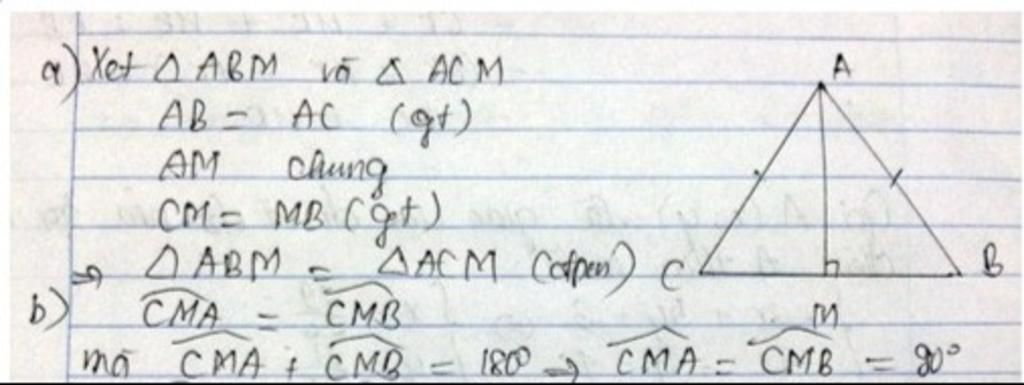 a) Xet △ ABM và △ ACM
AB = AC (gt)
AM chung
CM = MB (gt)
⇒ △ ABM = △ ACM
b) CMA = CMB
mà CMA + CMB = 180° → CMA = CMB = 90°
A
C
B
M